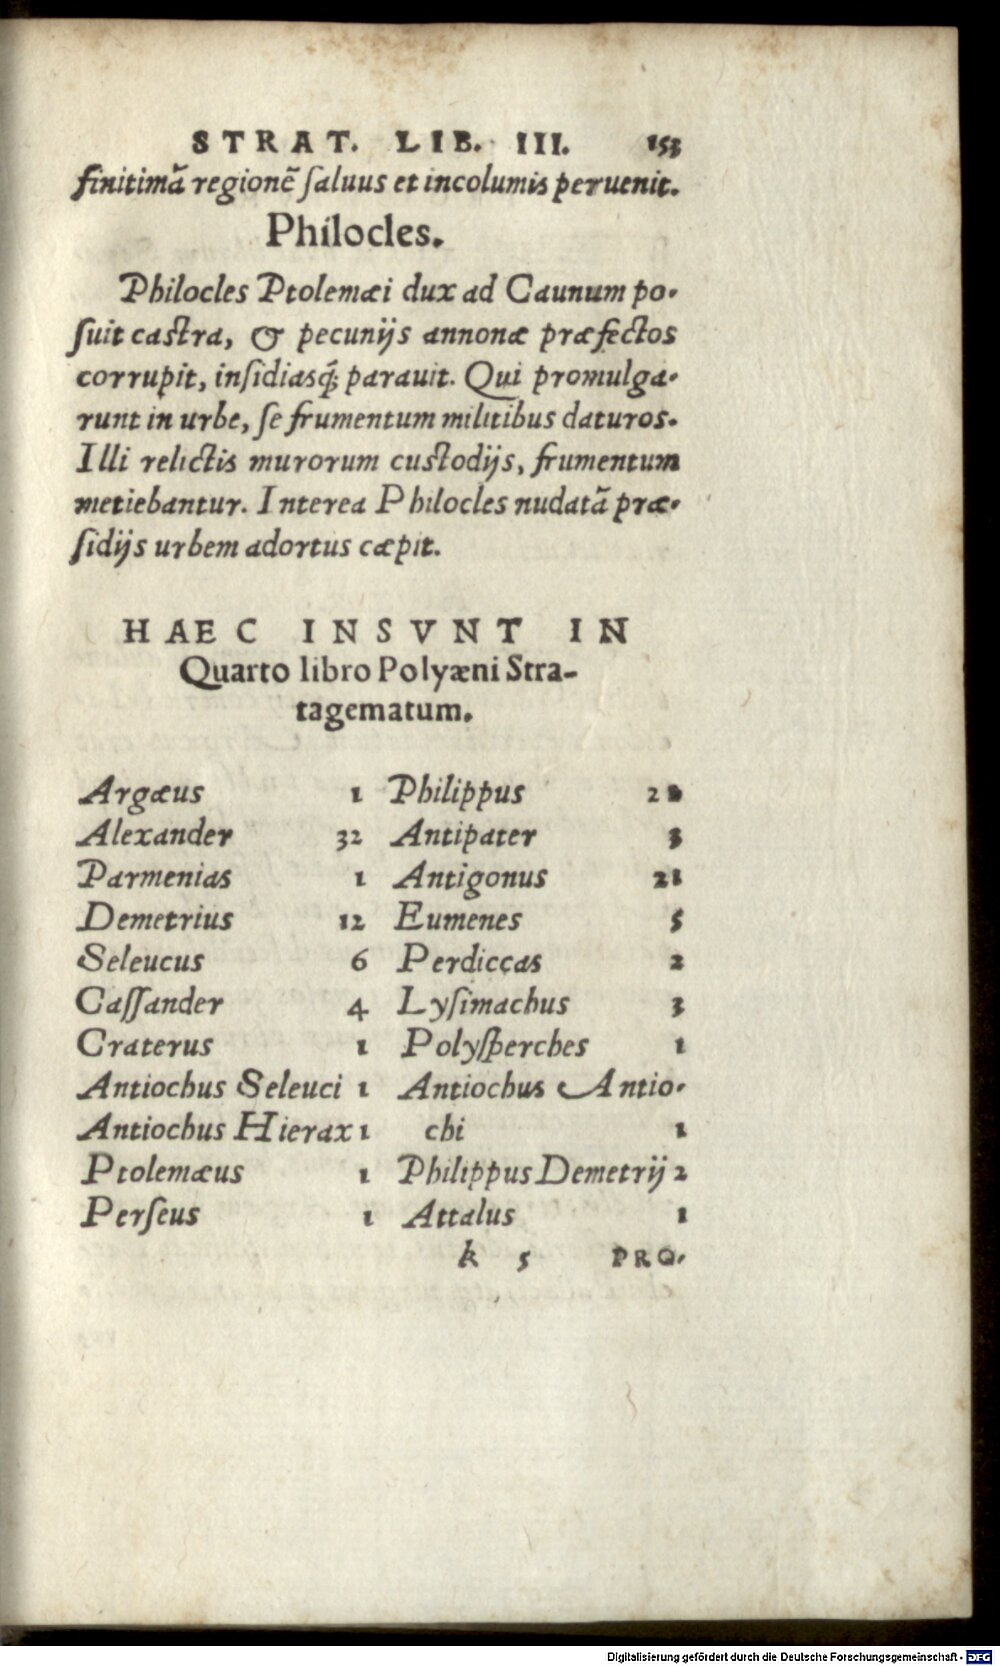 STRAT. LIB. III. 153
finitimā regionē ſaluus et incolumis peruenit.
Philocles.
Philocles Ptolemæi dux ad Caunum po-
ſuit castra, & pecunijs annonæ præfectos
corrupit, inſidiasq́; parauit. Qui promulga-
runt in urbe, ſe frumentum militibus daturos.
Illi relictis murorum custodijs, frumentum
metiebantur. Interea Philocles nudatā præ-
ſidijs urbem adortus cæpit.
HAEC INSVNT IN
Quarto libro Polyæni Stra-
tagematum.
Argæus 1 Philippus
Alexander 32 Antipater 3
Parmenias 1 Antigonus 21
Demetrius 12 Eumenes 5
Seleucus 6 Perdiccas 2
Caſſander 4 Lyſimachus 3
Craterus 1 Polyſperches 1
Antiochus Seleuci 1 Antiochus Antio-
Antiochus Hierax 1 chi 1
Ptolemæus 1 Philippus Demetrij 2
Perſeus 1 Attalus 1
k 5 PRO-
Digitalisierung gefördert durch die Deutsche Forschungsgemeinschaft - DFG